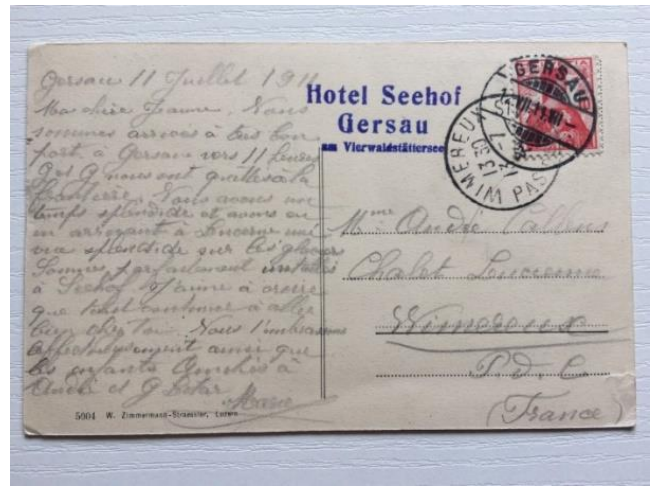 Gersau 11 Juillet 1911
Ma chère Jeanne, Nous
sommes arrivés à très bon
port à Gersau vers 11 heures
G nous ont quittés à la
frontière. Nous avons un
temps splendide et avons eu
en arrivant à Lucerne une
vue splendide sur les glaciers
Sommes parfaitement installés
à Seehof J'aime à croire
que tout continue à aller
bien chez toi. Nous t'embrassons
affectueusement ainsi que
les enfants Amitiés à
André et G
Marie
5004 W. Zimmermann-Straessler, Luzern
Hotel Seehof
Gersau
am Vierwaldstättersee
GERSAU
WIMEREUX PAS
Mme André
Chalet Lucienne
Wimereux
P.d.C.
(France)